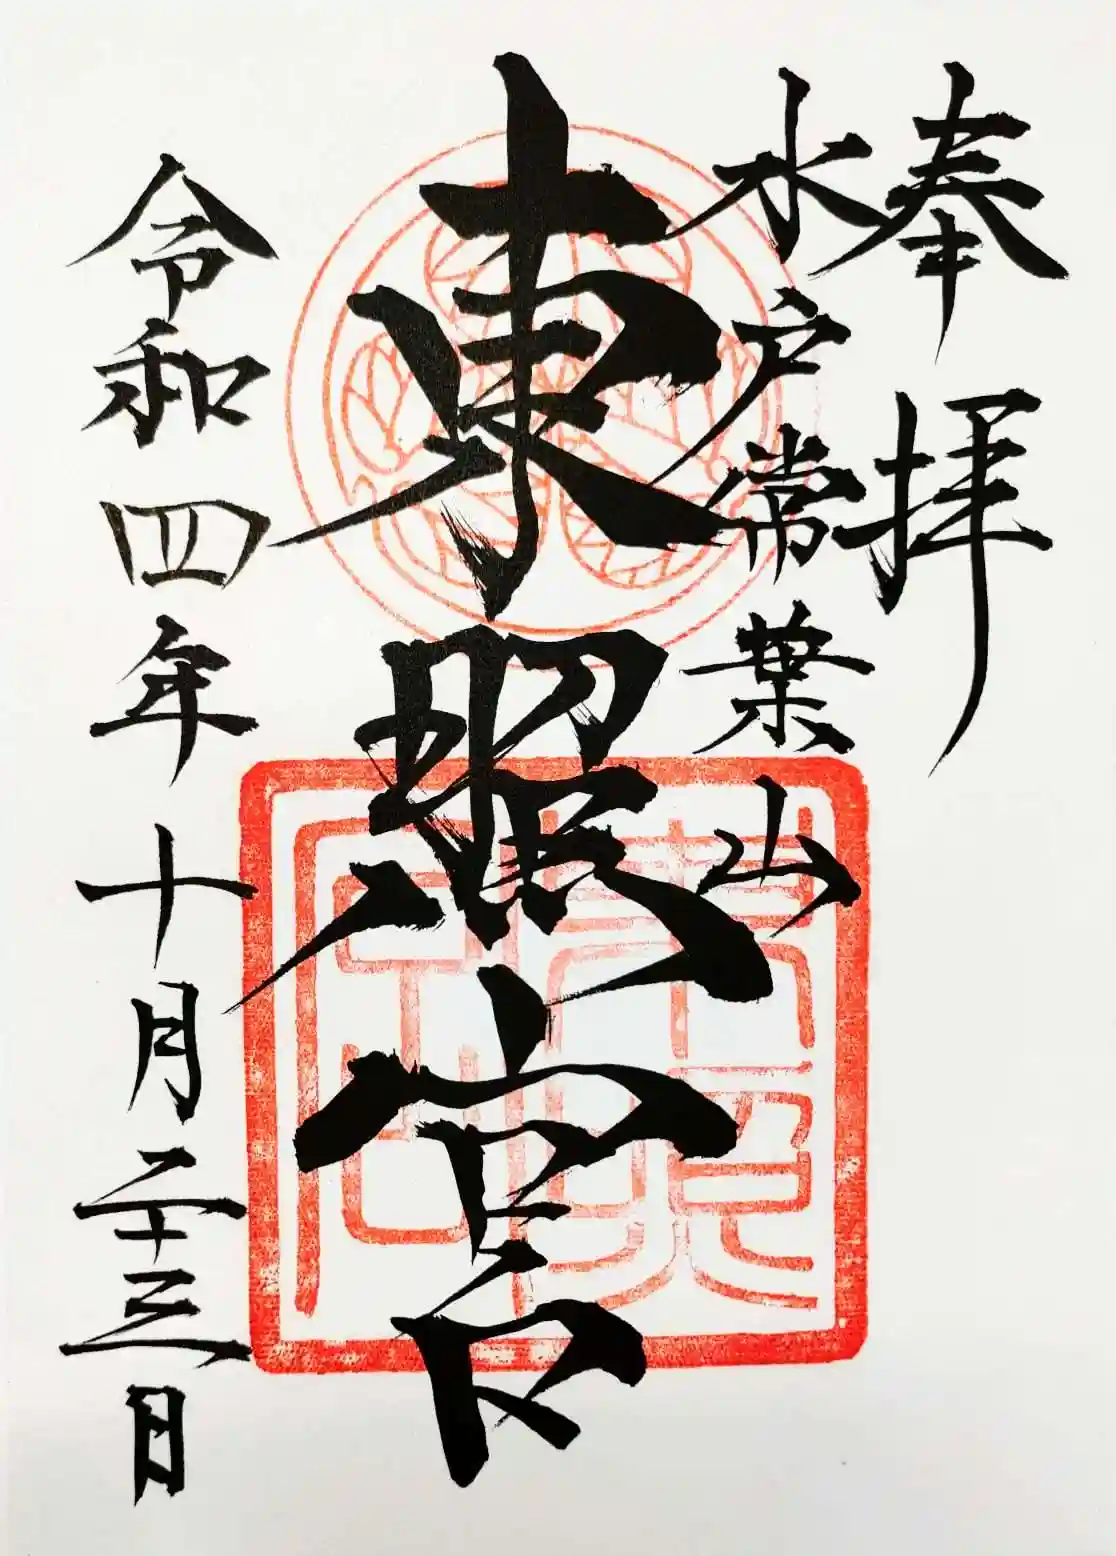 奉拝
水戸常葉山
東照宮
令和四年十月二十三日
東照宮